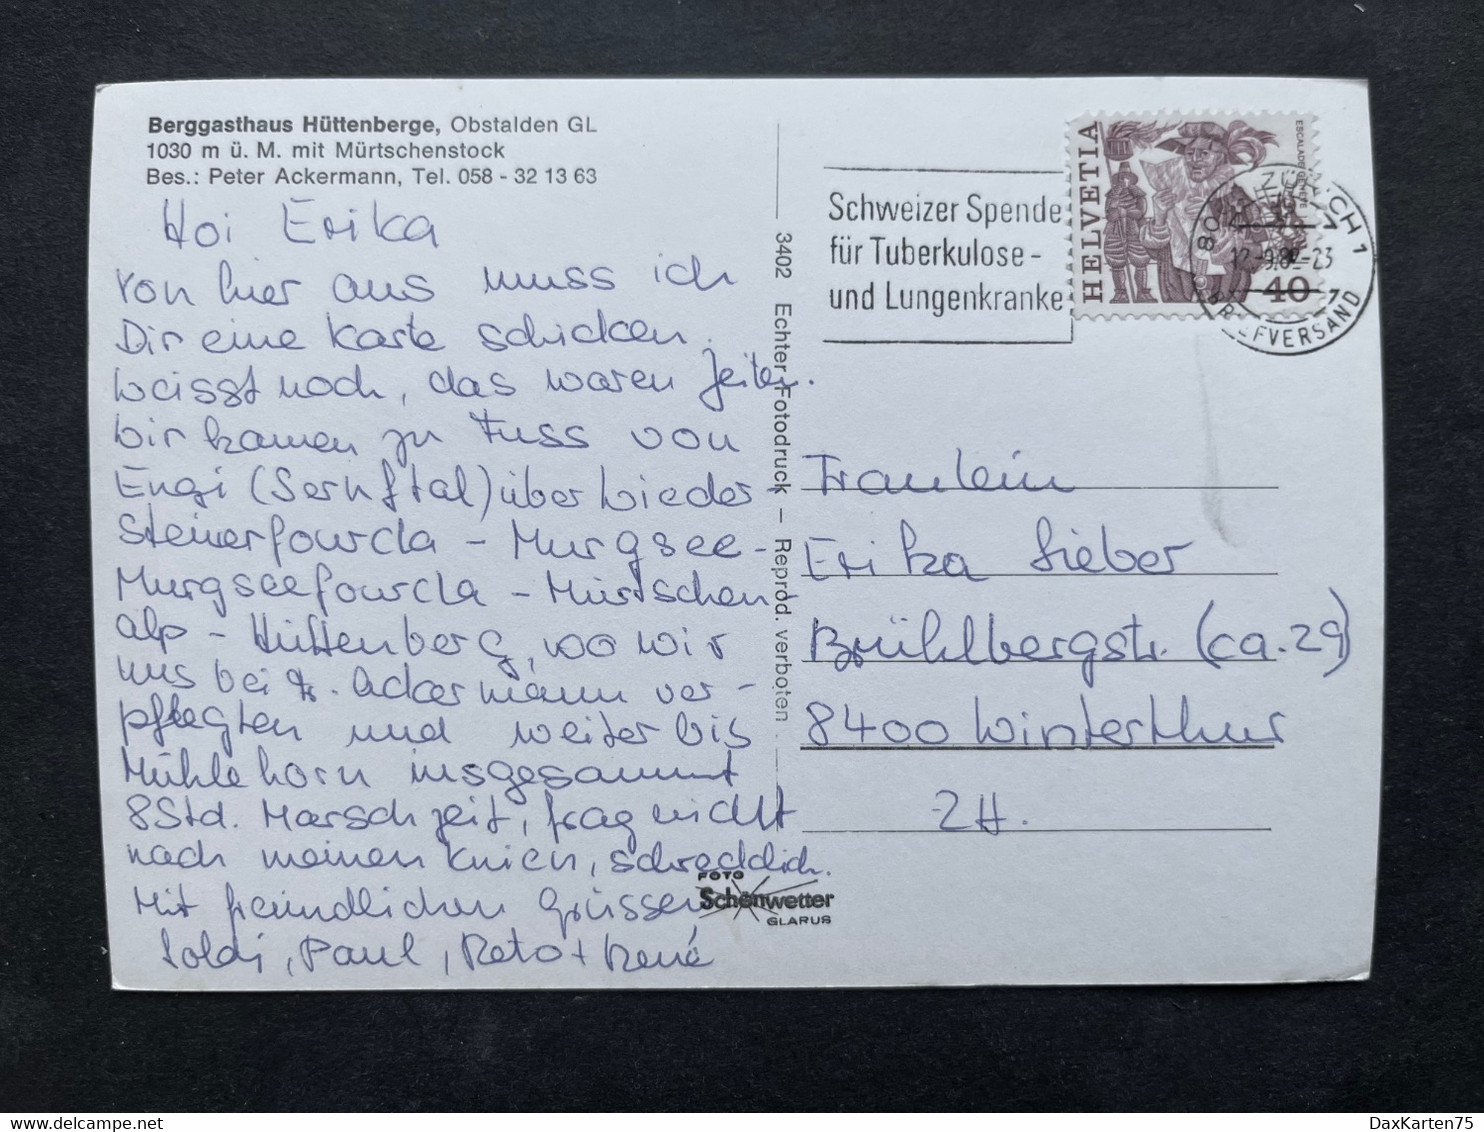 Berggasthaus Hüttenberge, Obstalden GL
1030 m ü. M. mit Mürtschenstock
Bes.: Peter Ackermann, Tel. 058 - 32 13 63
Hoi Erika
von hier aus muss ich
Dir eine Karte schicken.
Weisst noch, das waren Zeiten.
Wir kamen zu Fuss von
Engi (Sernftal) über Wieder-
steinerfourcla - Murgsee -
Murgseefourcla - Mürtschen
alp - Hüttenberg, wo wir
uns bei Fr. Ackermann ver-
pflegten und weiter bis
Mühlehorn insgesammt
8 Std. Marschzeit, frag nicht
nach meinen Knien, schrecklich.
Mit freundlichen Grüssen
Poldi, Paul, Reto + René
3402 Echter Fotodruck – Reprod. verboten
FOTO
Schönwetter
GLARUS
Schweizer Spende
für Tuberkulose-
und Lungenkranke
HELVETIA
ESCALADE GENÈVE
40
ZÜRICH 1
12.-9.82-23
BRIEFVERSAND
Fräulein
Erika Sieber
Brühlbergstr. (ca. 29)
8400 Winterthur
ZH.
DaxKarten75